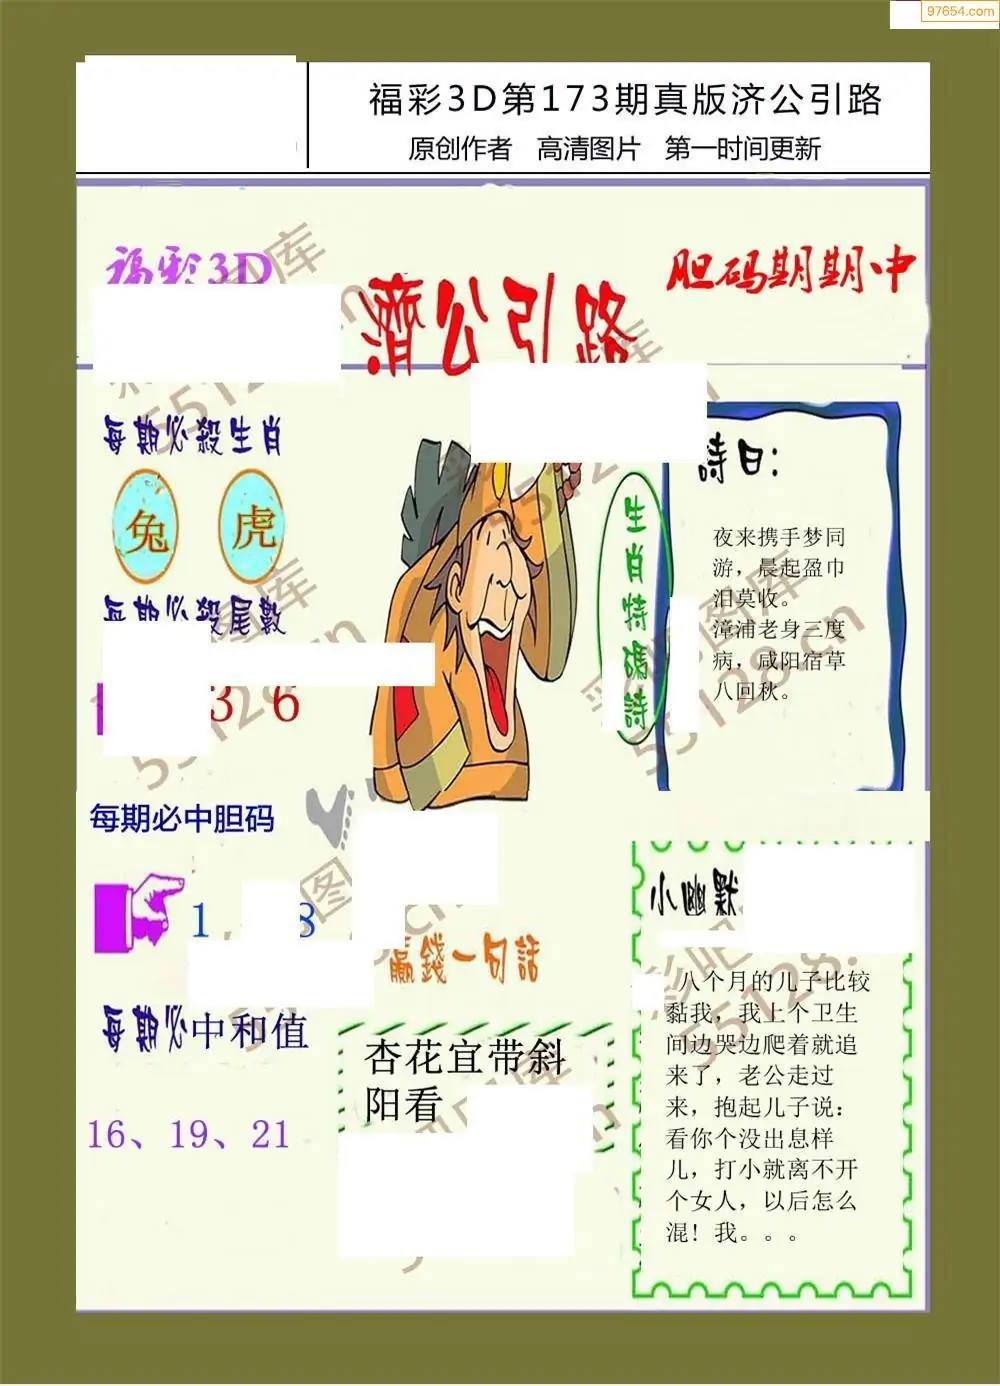 97654.com
福彩3D第173期真版济公引路
原创作者 高清图片 第一时间更新
福彩3D
胆码期期中
濟公引路
每期必殺生肖
兔 虎
每期必殺尾數
3 6
每期必中胆码
1 8
每期必中和值
16、19、21
生肖特碼詩
詩曰:
夜来携手梦同
游，晨起盈巾
泪莫收。
漳浦老身三度
病，咸阳宿草
八回秋。
赢錢一句話
杏花宜带斜
阳看
小幽默
八个月的儿子比较
黏我，我上个卫生
间边哭边爬着就追
来了，老公走过
来，抱起儿子说：
看你个没出息样
儿，打小就离不开
个女人，以后怎么
混！我。。。
55128.cn